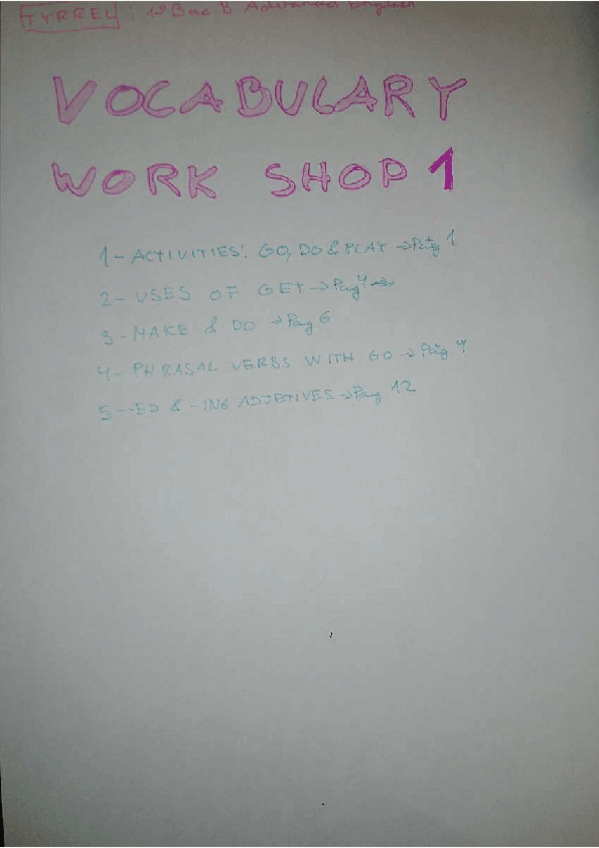 TYRREL: 1º Bac B Advanced English
VOCABULARY
WORK SHOP 1
1- ACTIVITIES: GO, DO & PLAY → Pag 1
2- USES OF GET → Pag 4
3- MAKE & DO → Pag 6
4- PHRASAL VERBS WITH GO → Pag
5- -ED & -ING ADJETIVES → Pag 12